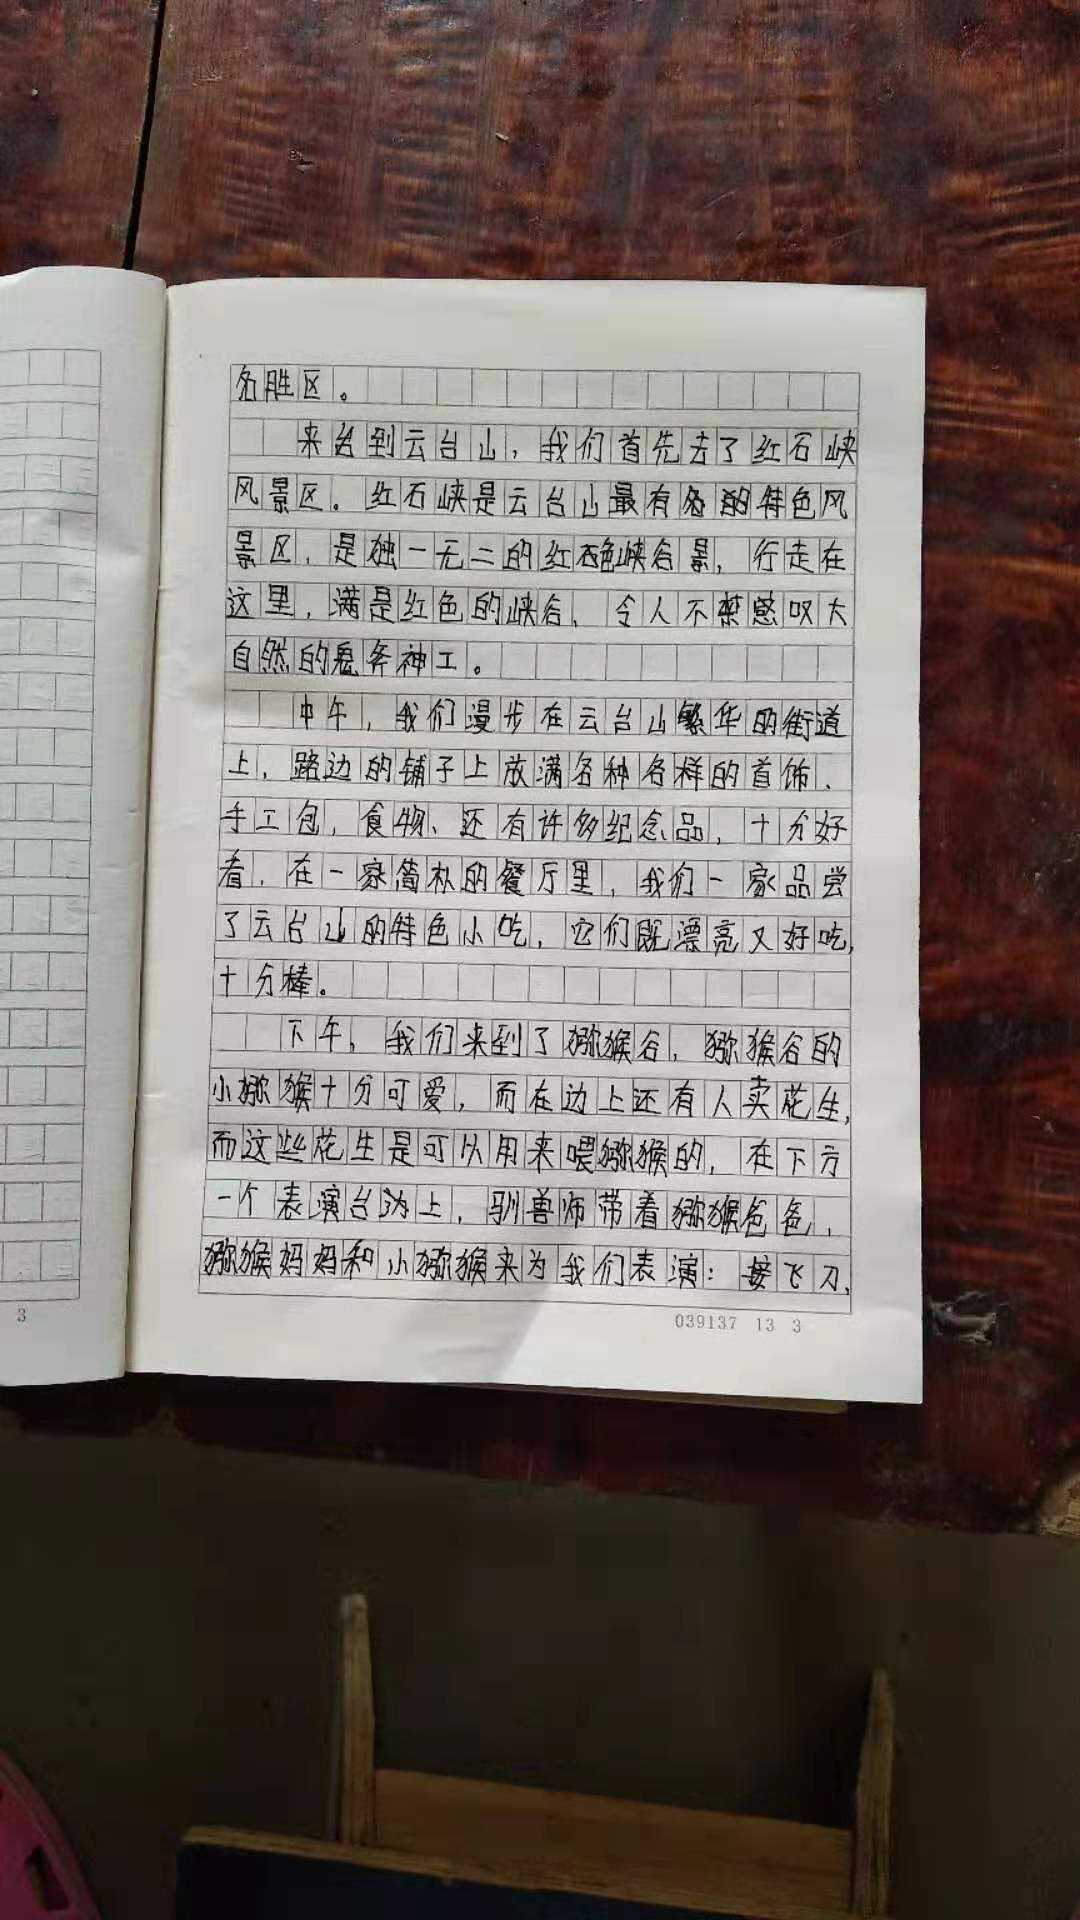 名胜区。
来到云台山，我们首先去了红石峡
风景区。红石峡是云台山最有名的特色风
景区，是独一无二的红色峡谷景，行走在
这里，满是红色的峡谷，令人不禁感叹大
自然的鬼斧神工。
中午，我们漫步在云台山繁华的街道
上，路边的铺子上放满各种各样的首饰、
手工包，食物、还有许多纪念品，十分好
看，在一家简朴的餐厅里，我们一家品尝
了云台山的特色小吃，它们既漂亮又好吃，
十分棒。
下午，我们来到了猕猴谷，猕猴谷的
小猕猴十分可爱，而在边上还有人卖花生，
而这些花生是可以用来喂猕猴的，在下方
一个表演台边上，驯兽师带着猕猴爸爸，
猕猴妈妈和小猕猴来为我们表演：接飞刀，
3
039137 13 3